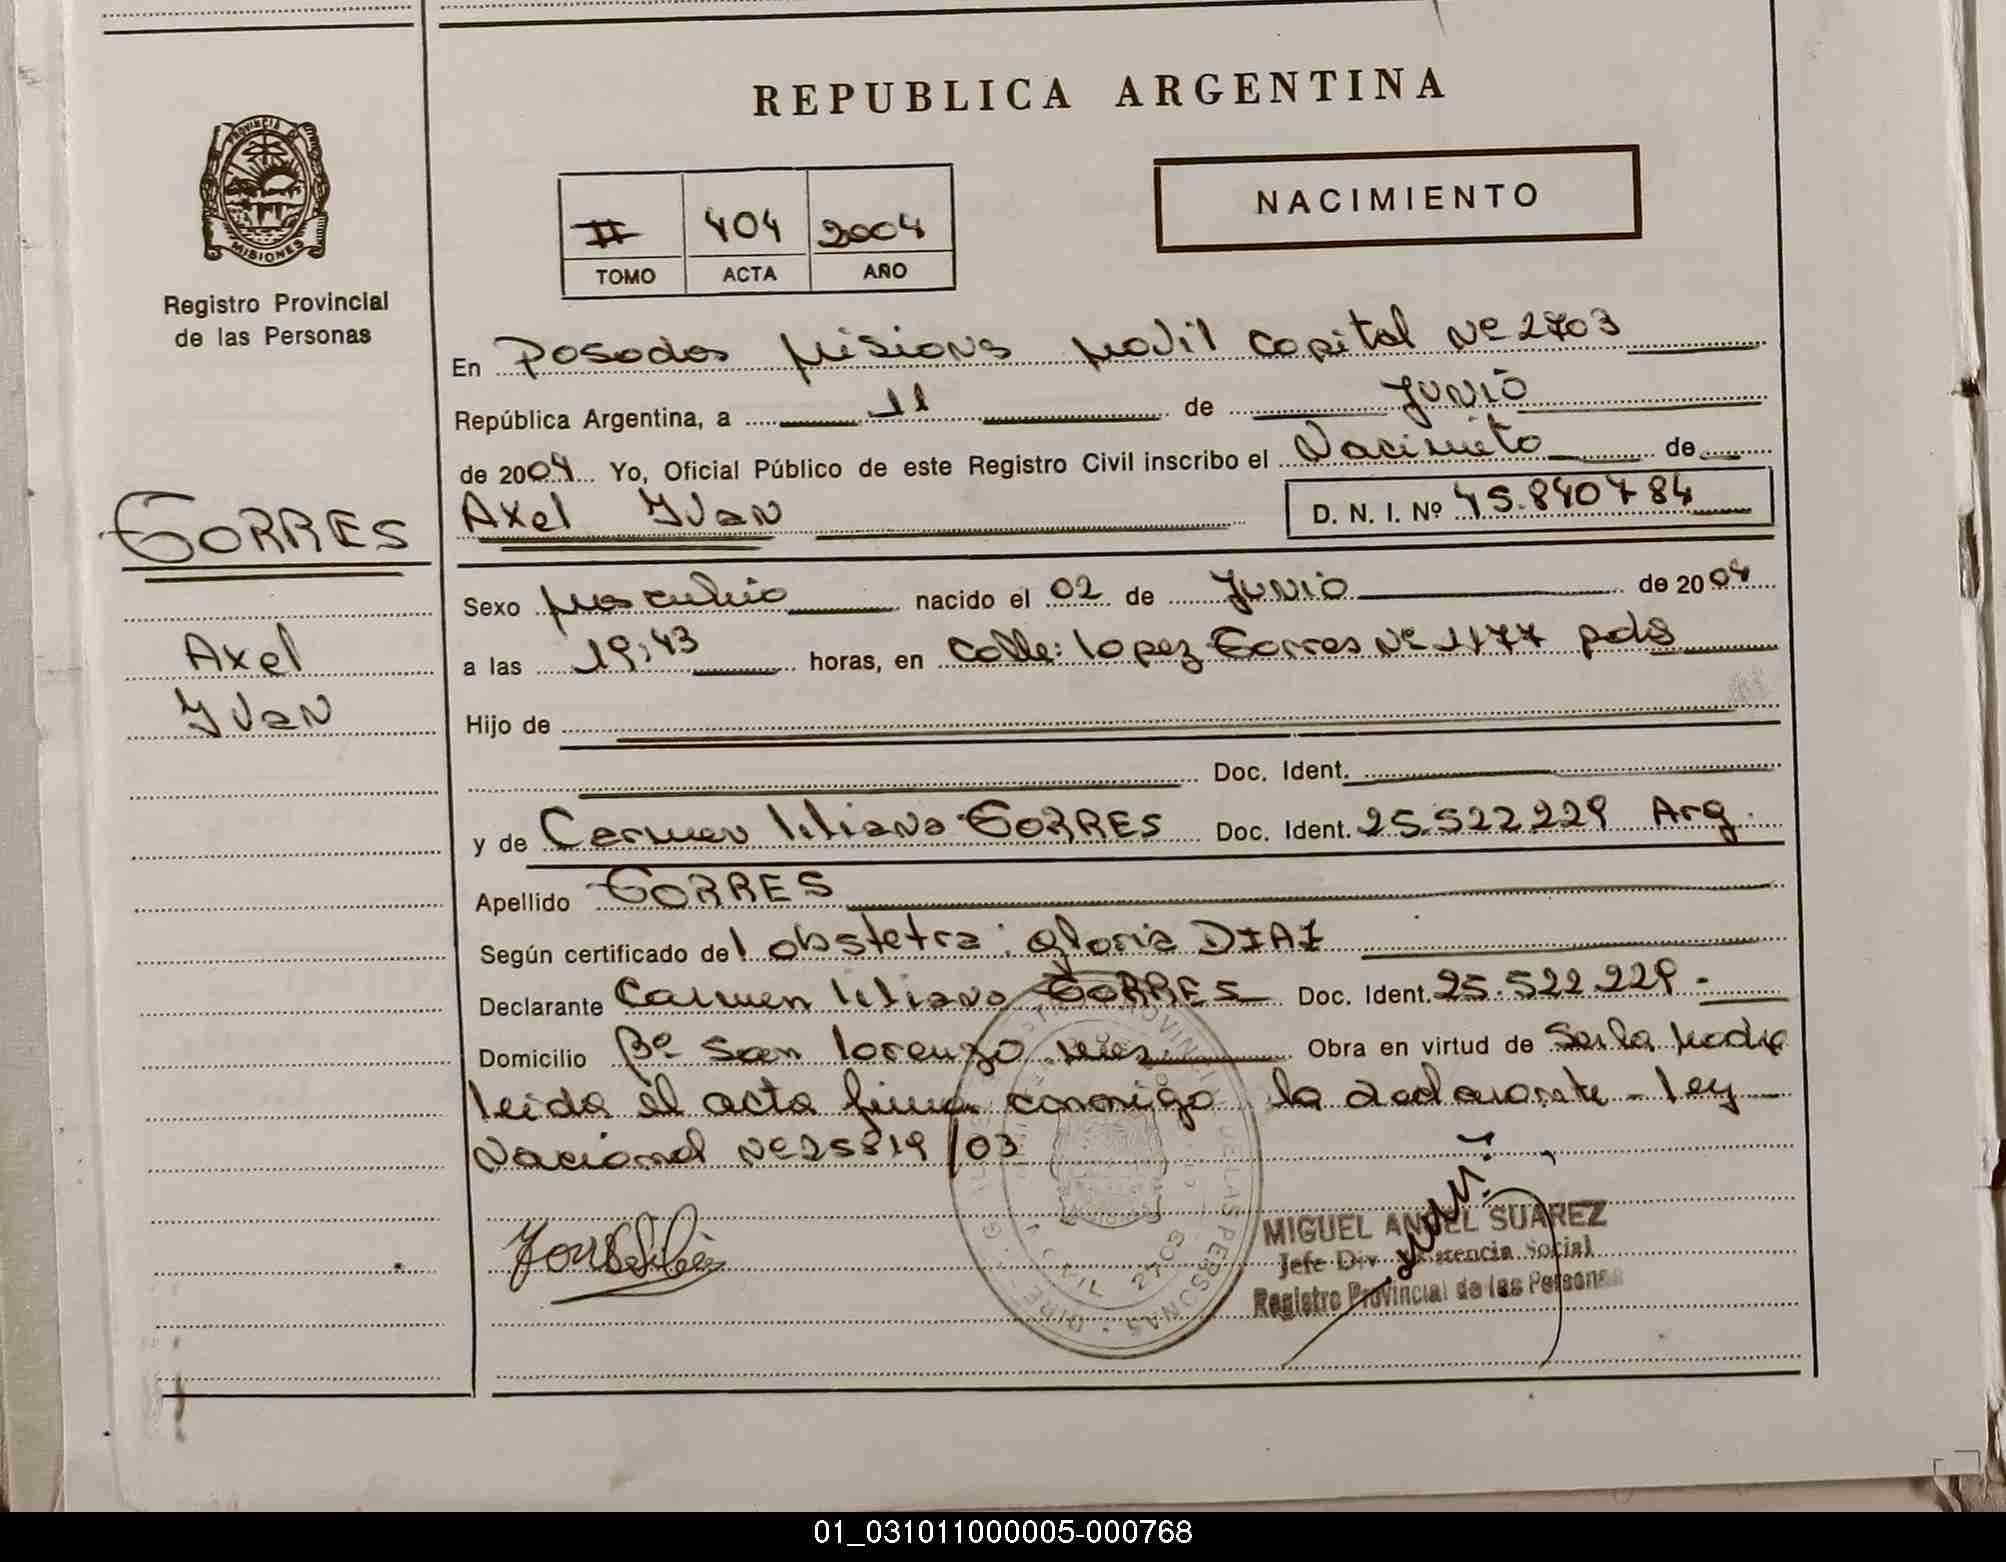 REPUBLICA ARGENTINA
PROVINCIA DE MISIONES
Registro Provincial
de las Personas
NACIMIENTO
II 404 2004
TOMO ACTA AÑO
En Posadas Misiones Movil Capital Nº 2703
República Argentina, a 11 de Junio
de 2004 Yo, Oficial Público de este Registro Civil inscribo el Nacimieto de
Axel Ivan D. N. I. Nº 45.840784
TORRES
Axel
Ivan
Sexo Masculino nacido el 02 de Junio de 2004
a las 19,43 horas, en Calle: lopez Torres Nº 1177 pdas
Hijo de
Doc. Ident.
y de Carmen liliana TORRES Doc. Ident. 25.522.229 Arg.
Apellido TORRES
Según certificado del obstetra: gloria DIAZ
Declarante Carmen liliana TORRES Doc. Ident. 25.522.229.-
Domicilio Bº San lorenzo Obra en virtud de Ser la Madre
leida el acta firma conmigo la declarante - ley
Nacional Nº 25819/03
MIGUEL ANGEL SUAREZ
Jefe Div. Asistencia Social
Registro Provincial de las Personas
CIVIL 2703
01_031011000005-000768